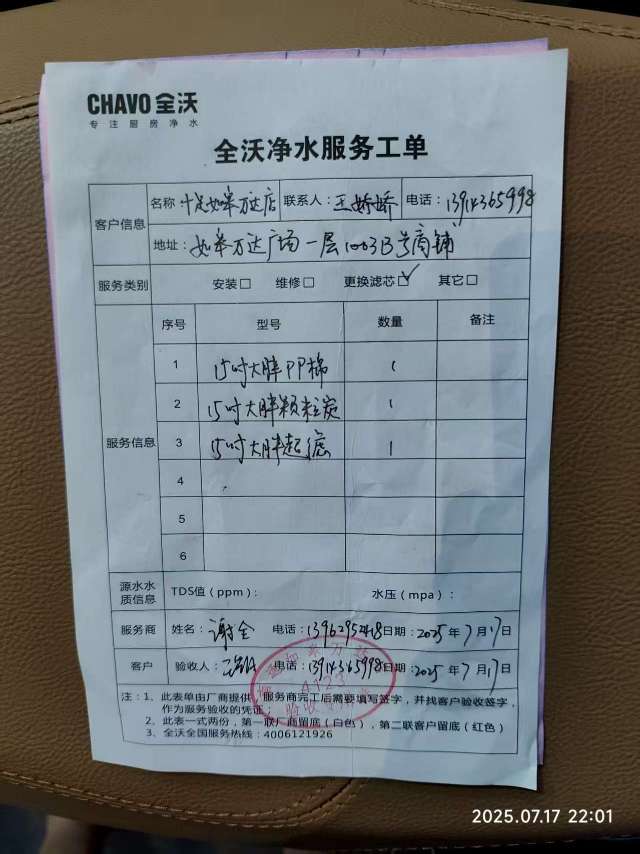 CHAVO 全沃
专注厨房净水
全沃净水服务工单
客户信息 名称 如皋万达店 联系人：王娇娇 电话：13914365998
地址：如皋万达广场一层1003B号商铺
服务类别 安装□ 维修□ 更换滤芯□✓ 其它□
服务信息 序号 型号 数量 备注
1 15吋大胖PP棉 1
2 15吋大胖颗粒炭 1
3 15吋大胖超滤 1
4
5
6
源水水质信息 TDS值（ppm）： 水压（mpa）：
服务商 姓名：谢全 电话： 日期：2025年7月17日
客户 验收人： 电话：13914365998 日期：2025年7月17日
注：1、此表单由厂商提供，服务商完工后需要填写签字，并找客户验收签字，
作为服务验收的凭证
2、此表一式两份，第一联厂商留底（白色），第二联客户留底（红色）
3、全沃全国服务热线：4006121926
2025.07.17 22:01